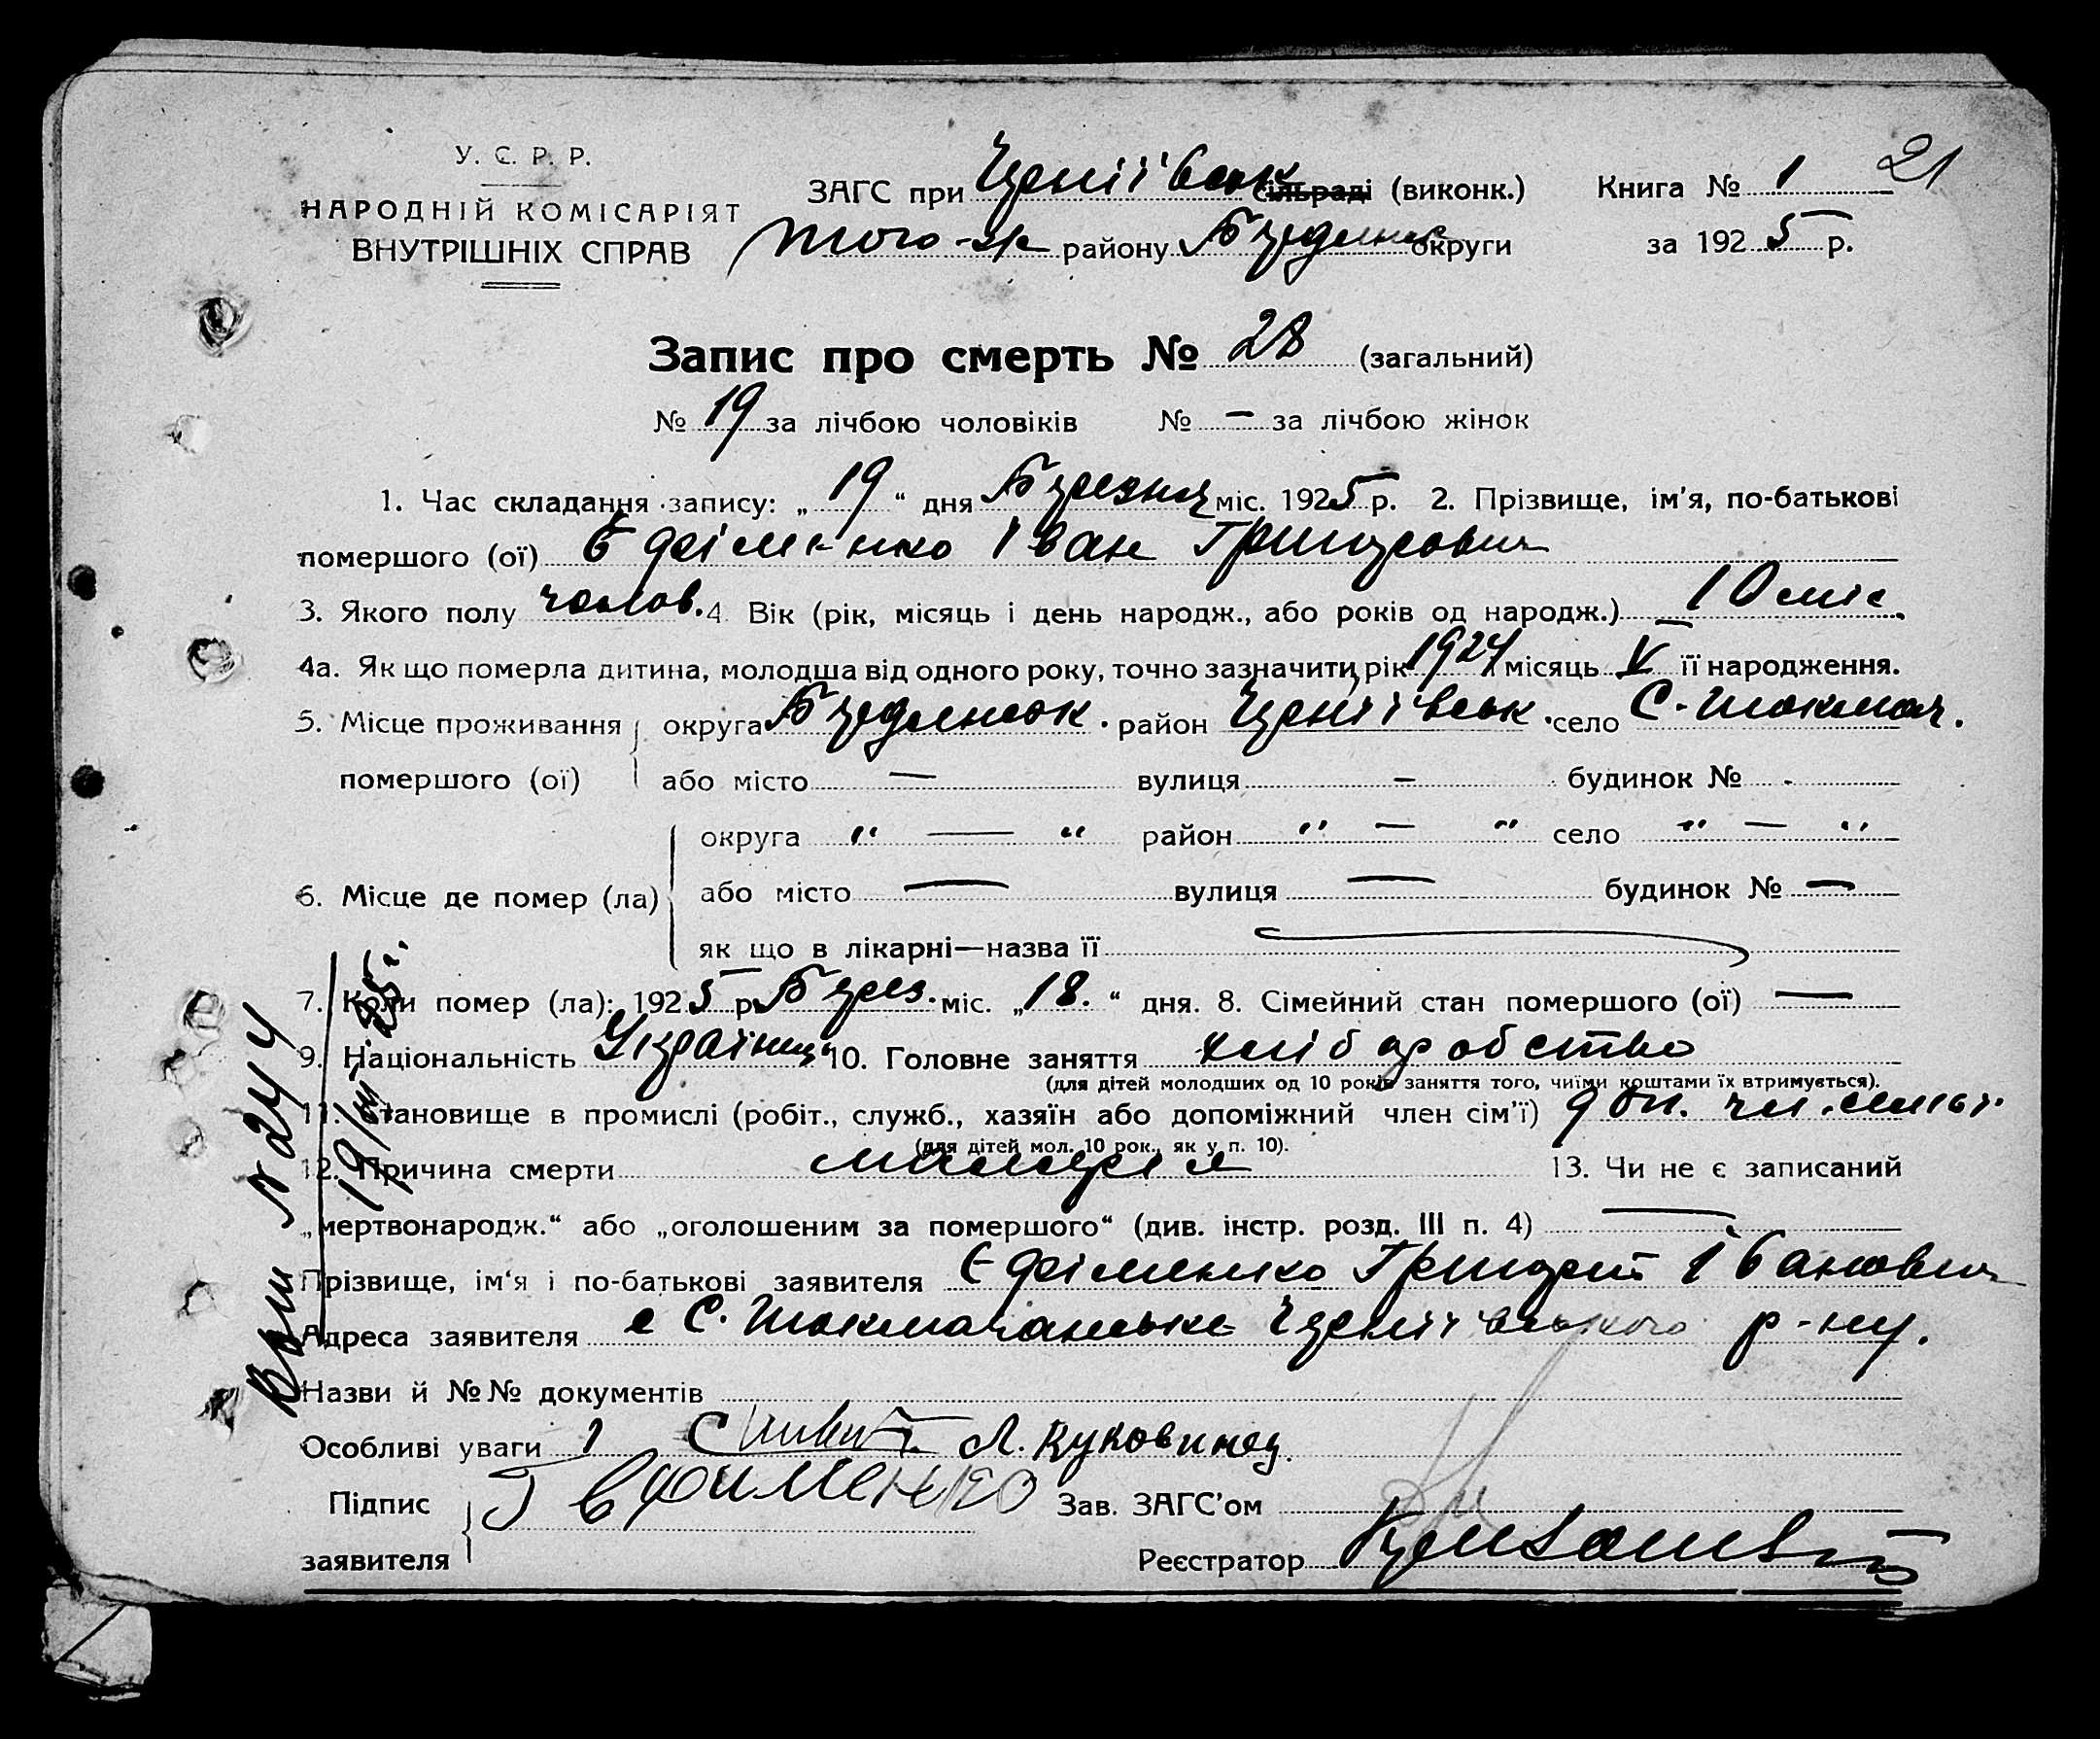 У. С. Р. Р.
НАРОДНІЙ КОМІСАРІЯТ
ВНУТРІШНІХ СПРАВ
ЗАГС при Черніївськ Сільраді (виконк.) Книга № 1 21
того-ж району Бердянськ округи за 1925 р.
Запис про смерть № 28 (загальний)
№ 19 за лічбою чоловіків № — за лічбою жінок
1. Час складання запису: „ 19 “ дня Березня міс. 1925 р. 2. Прізвище, ім'я, по-батькові
помершого (ої) Єфіменко Іван Григорович
3. Якого полу чолов. 4. Вік (рік, місяць і день народж., або років од народж.) 10 міс.
4а. Як що померла дитина, молодша від одного року, точно зазначити рік 1924 місяць V її народження.
5. Місце проживання округа Бердянськ. район Черніївськ. село С-Токмач.
помершого (ої) або місто — вулиця — будинок № -
округа " — " район " — " село " — "
6. Місце де помер (ла) або місто — вулиця — будинок № —
як що в лікарні—назва її
7. Коли помер (ла): 1925 р. Берез. міс. „ 18. “ дня. 8. Сімейний стан помершого (ої) —
9. Національність Українць 10. Головне заняття хліборобство
(для дітей молодших од 10 років заняття того, чиїми коштами їх втримується).
11. Становище в промислі (робіт., служб., хазяїн або допоміжний член сім'ї) доп. чл.
(для дітей мол. 10 рок., як у п. 10).
12. Причина смерти малярія 13. Чи не є записаний
„мертвонародж.“ або „оголошеним за помершого“ (див. інстр. розд. III п. 4) —
Прізвище, ім'я і по-батькові заявителя Єфіменко Григорій Іванович
Адреса заявителя с С. Токмачанське Черніївського р-ну.
Назви й №№ документів
Особливі уваги 1 Л. Куковинец.
Підпис заявителя Г Єфименко Зав. ЗАГС'ом
Реєстратор
N 244
19/III 25 г.